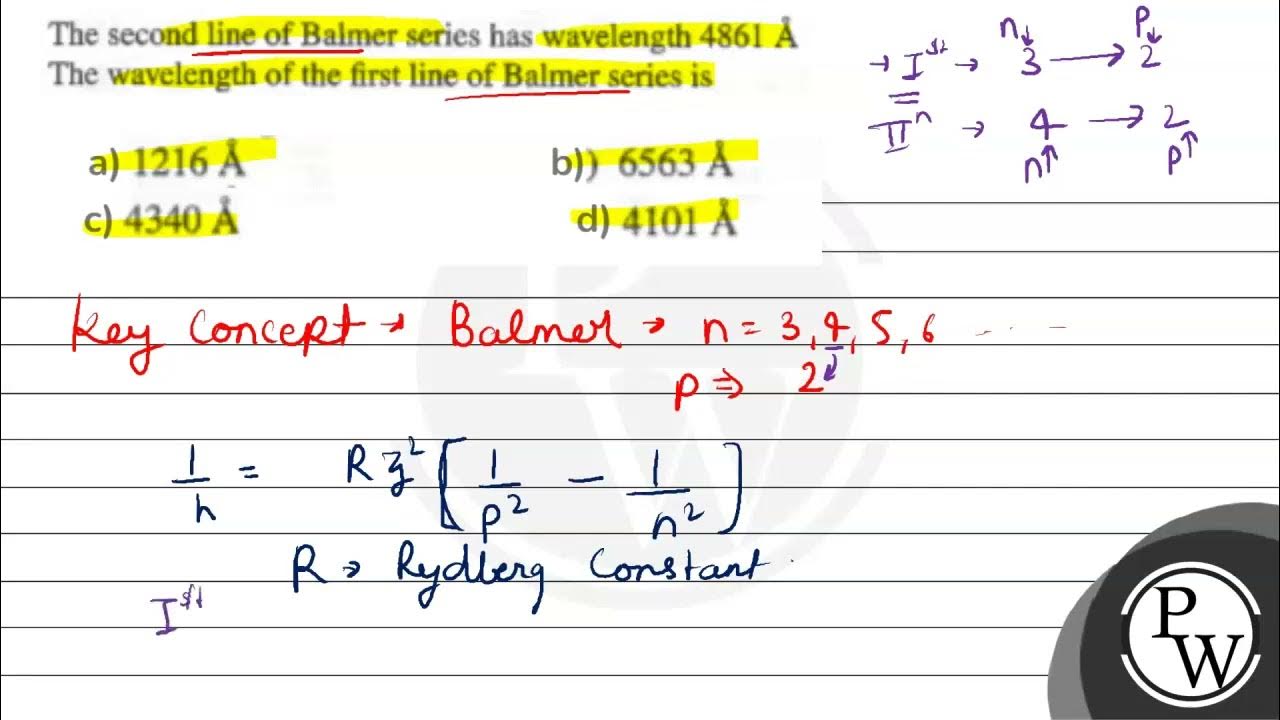 The second line of Balmer series has wavelength 4861 Å
The wavelength of the first line of Balmer series is
a) 1216 Å b)) 6563 Å
c) 4340 Å d) 4101 Å
n↓ P↓
→ Iˢᵗ → 3 → 2
IIⁿ → 4 → 2
n↑ P↑
Key Concept → Balmer → n = 3, 4, 5, 6 - - - -
p ⇒ 2
1/λ = R z² [1/p² − 1/n²]
R → Rydberg Constant.
Iˢᵗ
PW